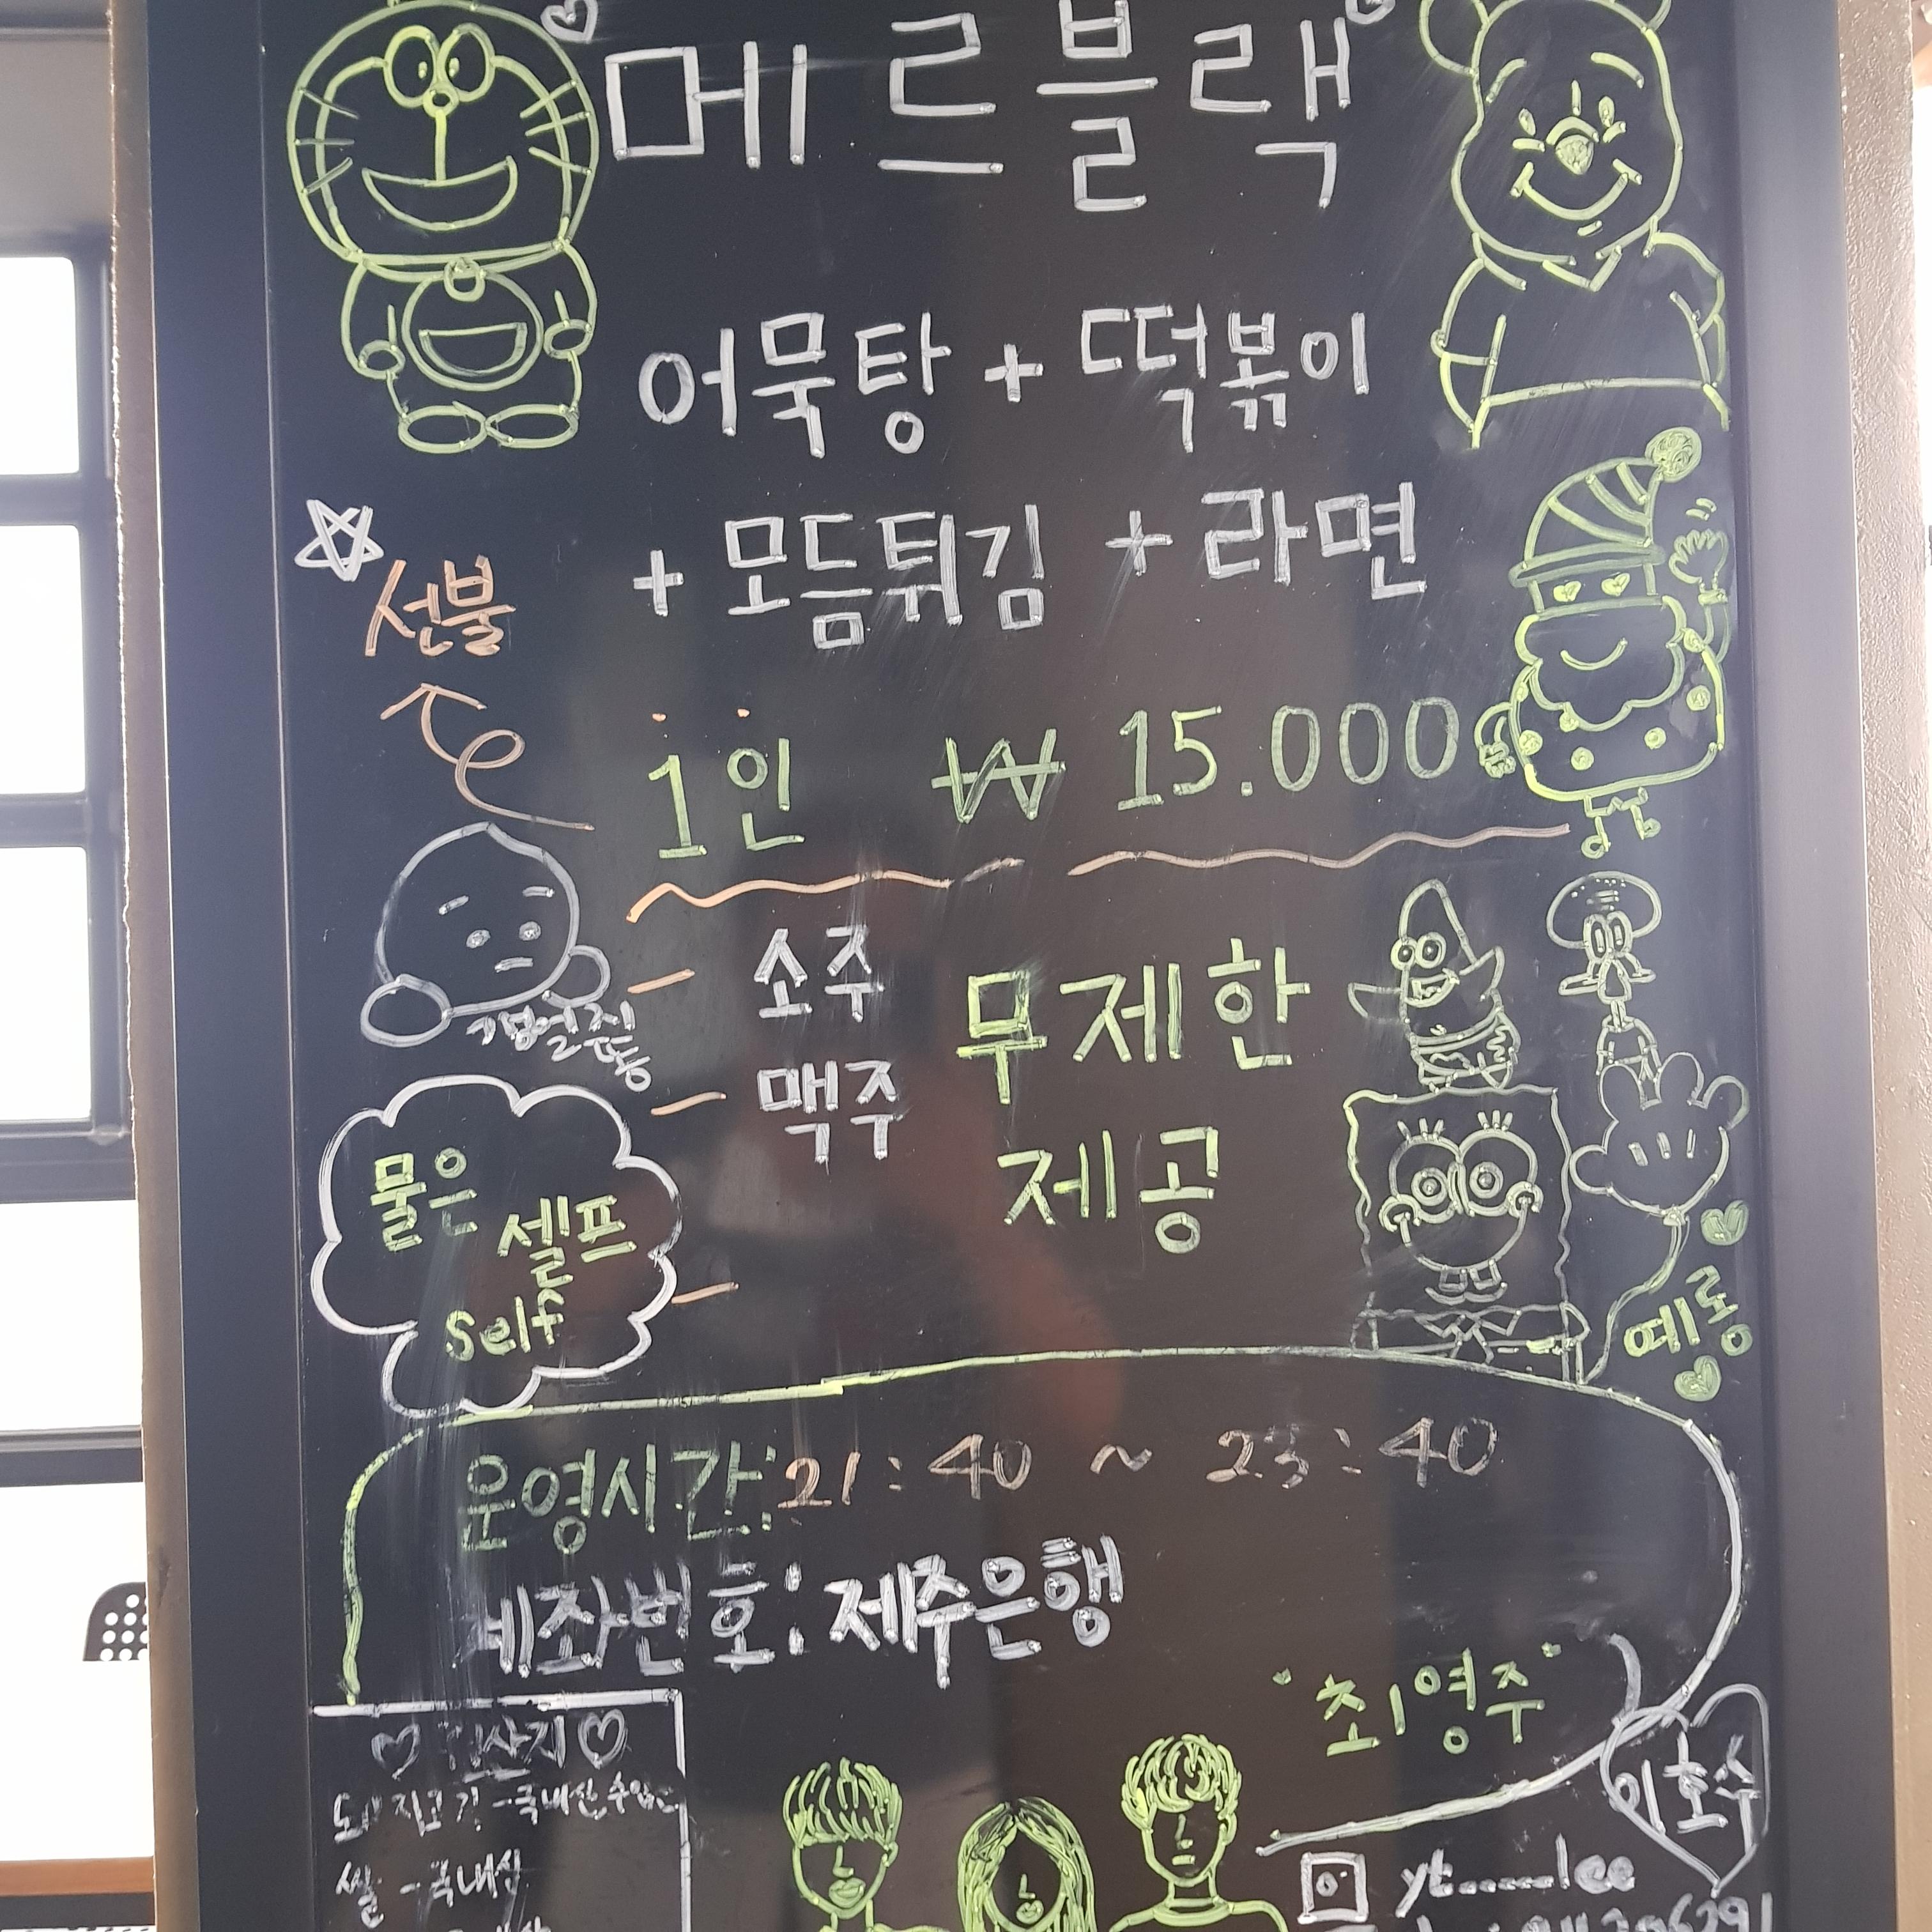 메르블랙
어묵탕 + 떡볶이
+ 모듬튀김 + 라면
선불
1인 ₩ 15.000
소주
맥주
무제한
제공
물은
셀프
self
예롱
운영시간: 21:40 ~ 23:40
계좌번호: 제주은행
"최영주"
이호수
원산지
돼지고기-국내산수입산
쌀-국내산